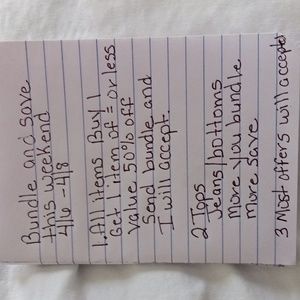 Bundle and save
this weekend
4/6 - 4/8
1. All items Buy 1
Get 1 item of = or less
value 50% off
Send bundle and
I will accept.
2 Tops
Jeans/bottoms
More you bundle
more save
3 Most offers will accepted